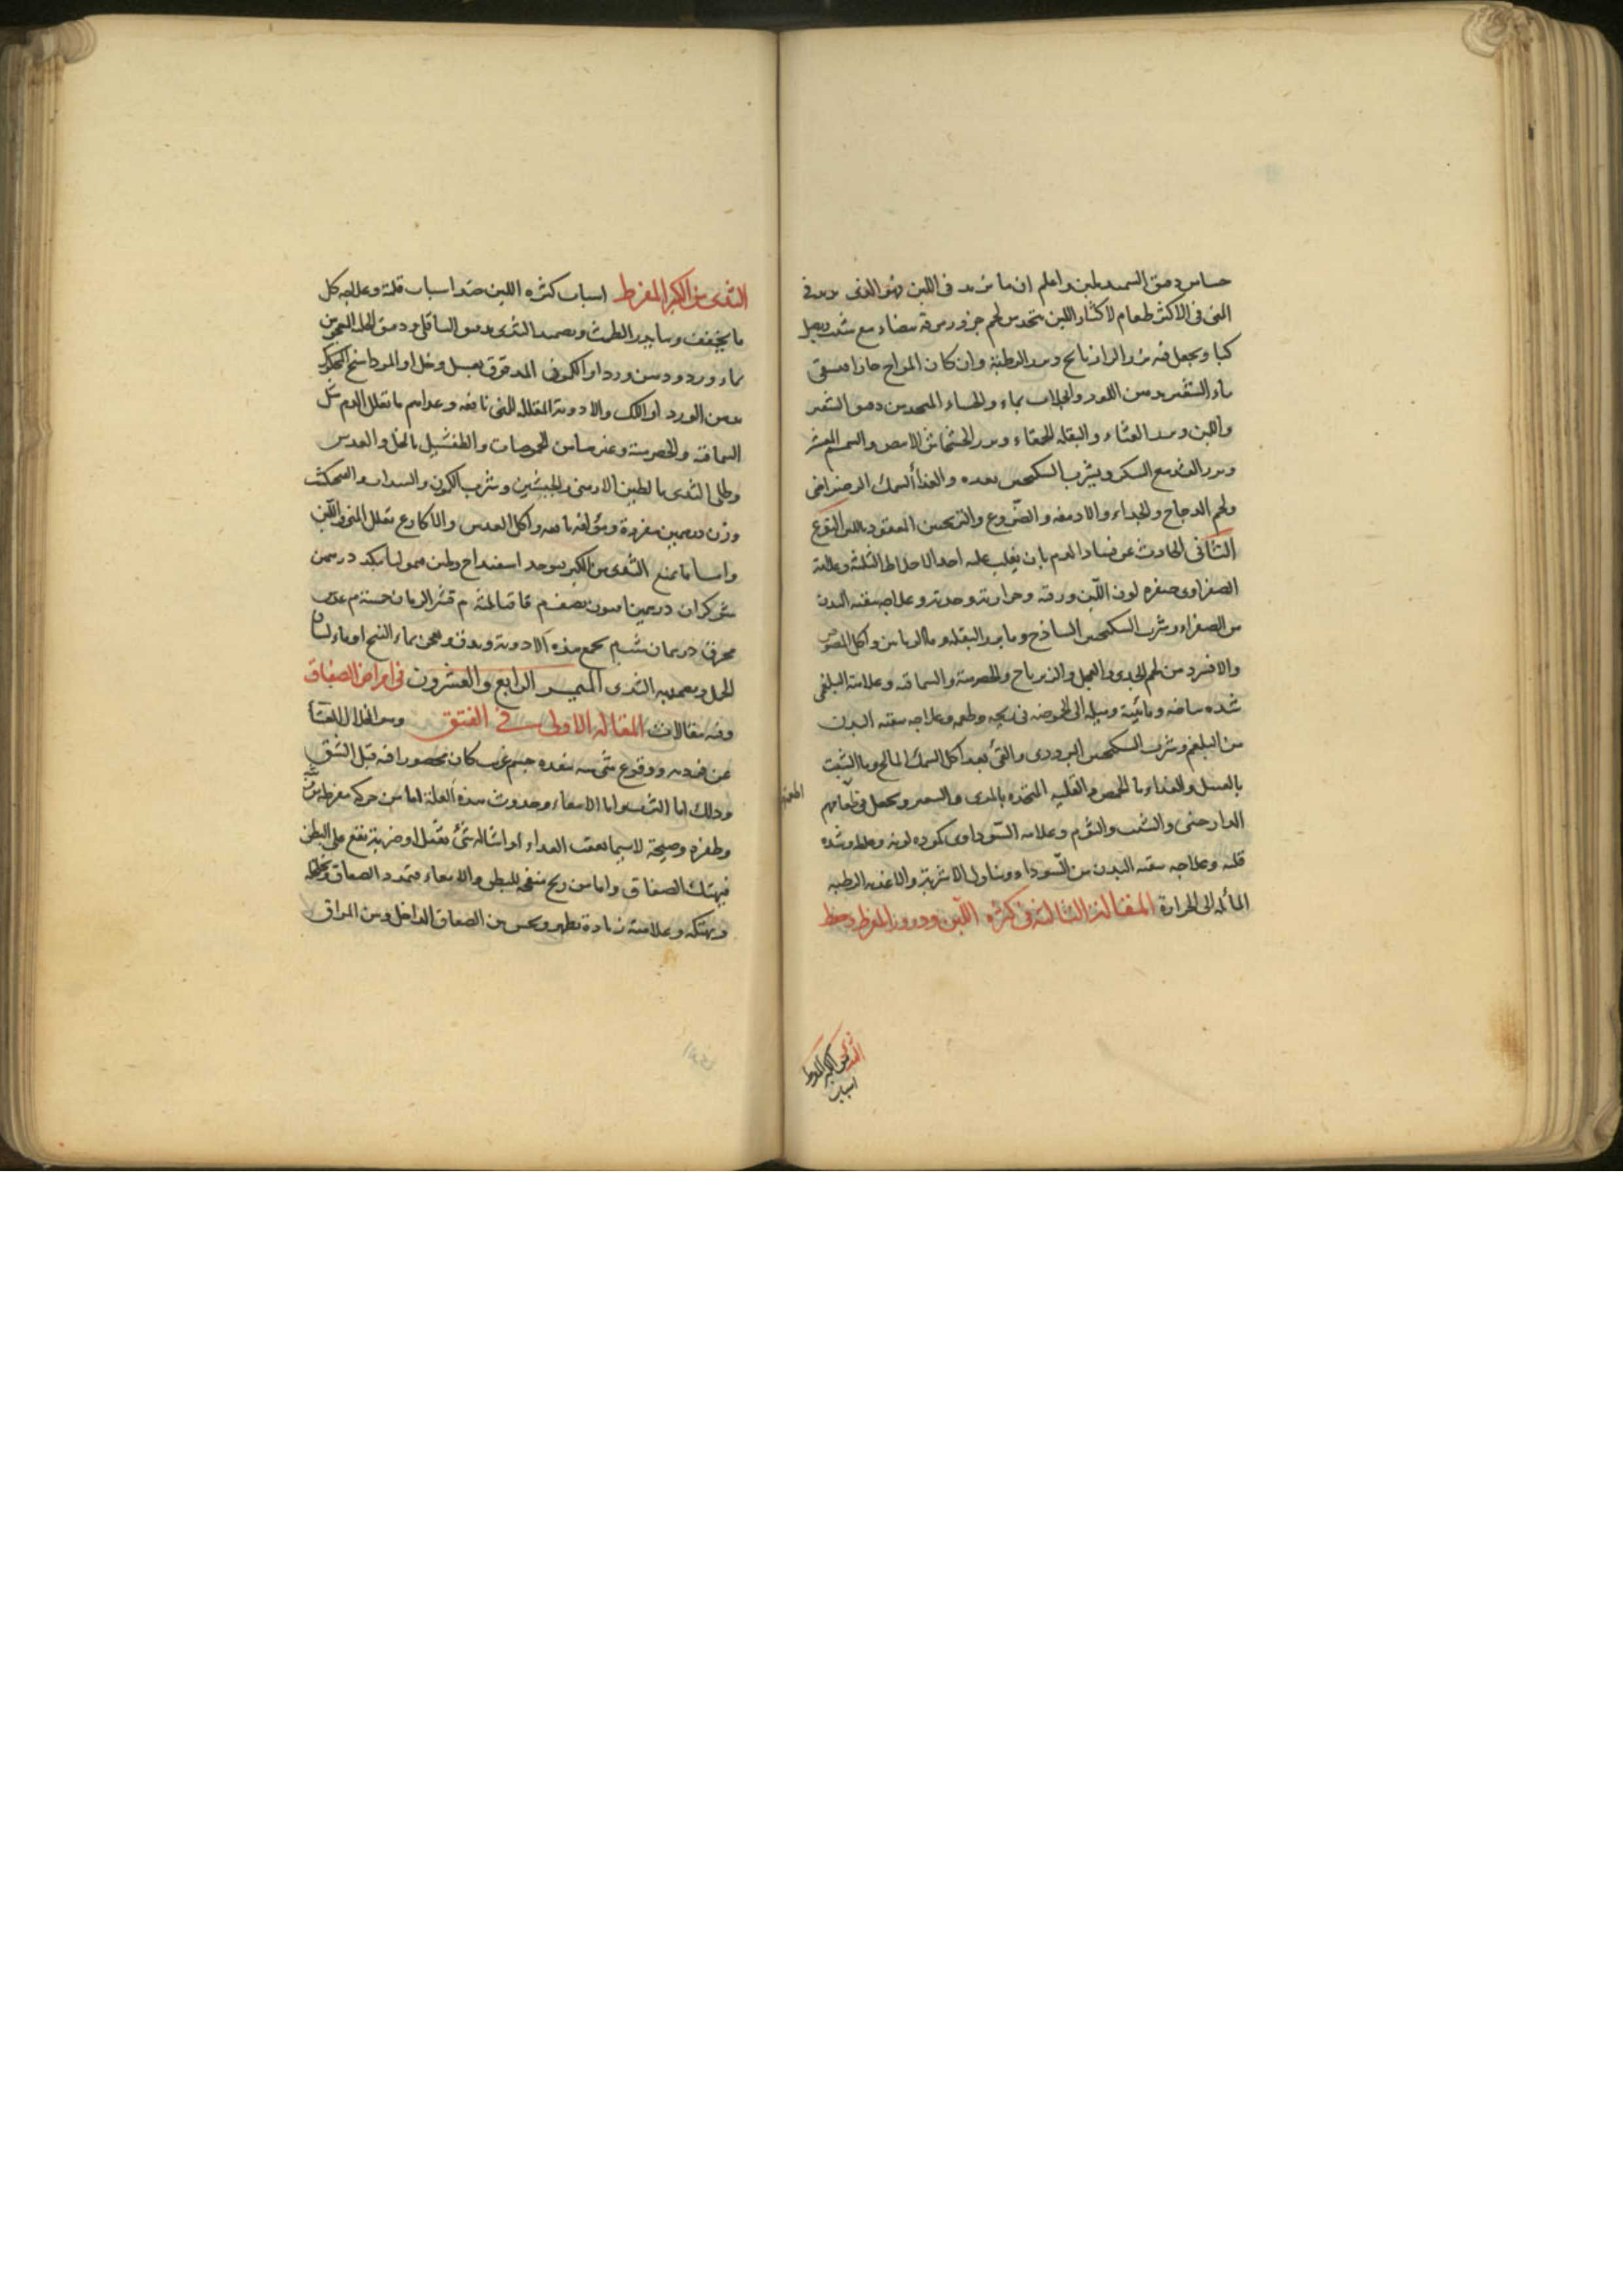 حساس دقيق السميد بلبن واعلم ان ما يزيد في اللبن فهو الذي يزيد في
المني في الاكثر طعام لاكثار اللبن يتخذ من لحم جزور مرقة بيضاء مع شبت وبصل
ويجعل فيه بزر الرازيانج وبزر الرطبة وان كان المزاج حارا فيسقى
ماء الشعير بدهن اللوز والجلاب بماء والحساء المتخذ من دقيق الشعير
واللبن وبزر القثاء والبقلة الحمقاء وبزر الخشخاش الابيض والسمسم المقشر
مع السكر ويشرب السكنجبين بعده والغذاء السمك الرضراضي
ولحم الدجاج والجداء والادمغة والضروع المعقود باللبن النوع
الثاني الحادث عن فساد الدم بان يغلب عليه احد الاخلاط الثلثة وعلامة
الصفراوي صفرة لون اللبن ورقته وحرارته وحدته وعلاجه تنقية البدن
من الصفراء وشرب السكنجبين الساذج وماء بزر البقلة وماء الرياس واكل المصوص
والافشرد من لحم الجدي والعجل والزيرباج والحصرمية والسماقية وعلامة البلغمي
شدة بياضه ومائيته وميله الى الحموضة في ريحه وطعمه وعلاجه تنقية البدن
من البلغم وشرب السكنجبين البزوري والقيء بعد اكل السمك المالح وماء الشبت
بالعسل والغذاء ماء الحمص و القلية المتخذة بالمري ويجعل في طعامهم
الدارصيني والشبت والثوم وعلامة السوداوي كمودة لونه وغلظه وشدة
قلته وعلاجه تنقية البدن من السوداء وتناول الاشربة والاغذية الرطبة
المائلة الى الحرارة المقالة الثالثة في كثرة اللبن ودروره المفرط وحفظ
الثدي من الكبر المفرط
اسباب
الثدي من الكبر المفرط اسباب كثرة اللبن ضد اسباب قلته وعلاجه كل
ما يجفف وما يدر الطمث ويضمد الثدي بدقيق الباقلي ودقيق الحلبة المعجون
بماء ورد ودهن ورد او الكمون المدقوق بعسل وخل او المرداسنج المحكوك
بدهن الورد او اللك والادوية المقللة للمني نافعة وغذاءهم ما يقلل الدم مثل
السماقية والحصرمية وغيرها من الحموضات والطفشيل بالخل والعدس
وطلي الثدي بالطين الارمني والجبسين وشرب الكمون والسداب والفنجنكشت
وزن درهمين مفردة ومؤلفة نافعة واكل العدس والاكارع يقلل المني واللبن
واما ما يمنع الثدي من الكبر يوخذ اسفيداج وطين قيموليا بكد درهمين
شوكران درهمين افيون نصف م قاقيا ثلثة م قشر الرمان خمسة م عفص
محرق درهمان شب م يجمع هذه الادوية ويدق ويعجن بماء البنج او ماء لسان
الحمل ويضمد به الثدي الميمر الرابع والعشرون في امراض الصفاق
وفيه مقالات المقالة الاولى في الفتق وهو انحلال الغشاء
عن فرديه ووقوع شيء فيه بنفذه جسم غريب كان محصورا فيه قبل الشق
وذلك اما الثرب واما الامعاء وحدوث هذه العلة اما من حركة مفرطة من وثبة
وطفرة وصيحة لاسيما بعقب الغذاء او اشالة شيء ثقيل او ضربة تقع على البطن
فيهتك الصفاق واما من ريح منفخة للبطن والامعاء فتمدد الصفاق وتخلخله
ويهتكه وعلامته زيادة تظهر وتحس بين الصفاق الداخل وبين المراق